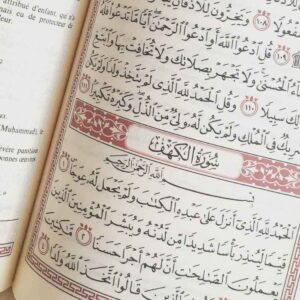 attribué d'enfant, qui n'a
jamais eu de protecteur de
(Muhammad),
sévère punition
bonnes œuvres
١٠٨ وَيَخِرُّونَ لِلْأَذْقَانِ
١٠٩ قُلِ ادْعُوا اللَّهَ أَوِ ادْعُوا الرَّحْمَٰنَ أَيًّا مَا تَدْعُوا
الْحُسْنَىٰ وَلَا تَجْهَرْ بِصَلَاتِكَ وَلَا تُخَافِتْ بِهَا وَابْتَغِ
سَبِيلًا ١١٠ وَقُلِ الْحَمْدُ لِلَّهِ الَّذِي لَمْ يَتَّخِذْ وَلَدًا وَلَمْ يَكُنْ
شَرِيكٌ فِي الْمُلْكِ وَلَمْ يَكُنْ لَهُ وَلِيٌّ مِنَ الذُّلِّ وَكَبِّرْهُ تَكْبِيرًا ١١١
سُورَةُ الْكَهْفِ
بِسْمِ اللَّهِ الرَّحْمَٰنِ الرَّحِيمِ
الْحَمْدُ لِلَّهِ الَّذِي أَنْزَلَ عَلَىٰ عَبْدِهِ الْكِتَٰبَ وَلَمْ يَجْعَلْ لَهُ عِوَجًا ١
قَيِّمًا لِيُنْذِرَ بَأْسًا شَدِيدًا مِنْ لَدُنْهُ وَيُبَشِّرَ الْمُؤْمِنِينَ الَّذِينَ
يَعْمَلُونَ الصَّٰلِحَٰتِ أَنَّ لَهُمْ أَجْرًا حَسَنًا ٢ مَٰكِثِينَ
الَّذِينَ قَالُوا اتَّخَذَ اللَّهُ وَلَدًا ٤